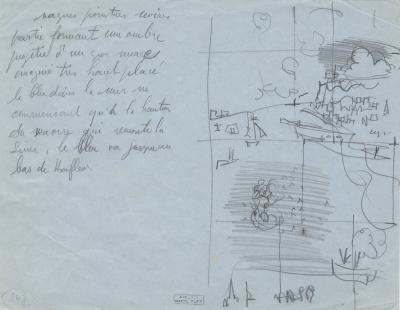 nuages pointres
partie formant une ombre
projetée d'un gros nuage
imaginé très haut placé
le bleu dans la mer ne
commencant qu'à la hauteur
du navire qui remonte la
Seine, le bleu va jusqu'au
bas de Honfleur